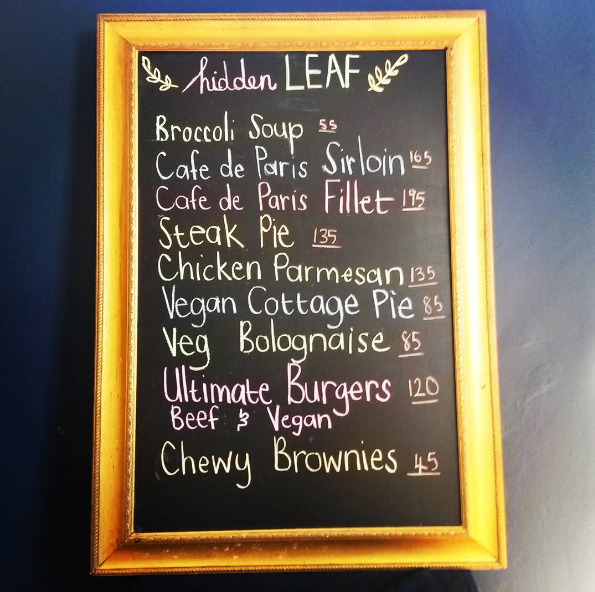 hidden LEAF
Broccoli Soup 55
Cafe de Paris Sirloin 165
Cafe de Paris Fillet 195
Steak Pie 135
Chicken Parmesan 135
Vegan Cottage Pie 85
Veg Bolognaise 85
Ultimate Burgers 120
Beef & Vegan
Chewy Brownies 45